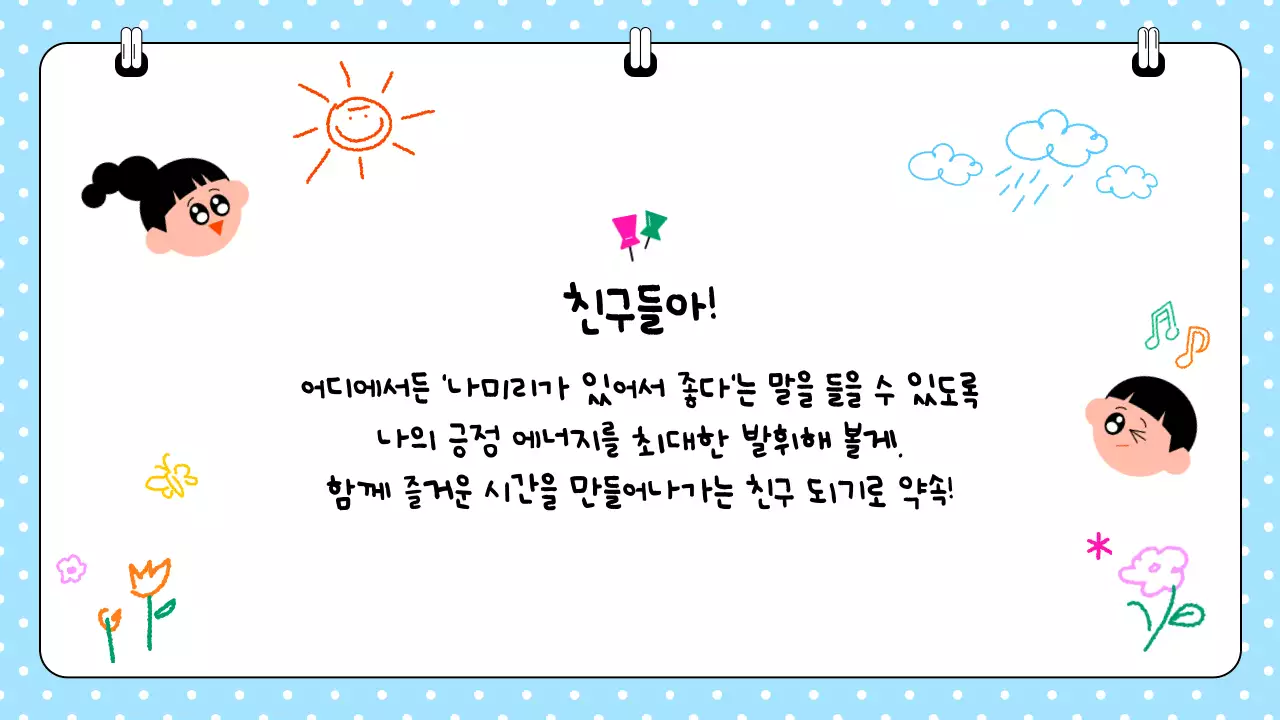 친구들아!
어디에서든 '나미리가 있어서 좋다'는 말을 들을 수 있도록
나의 긍정 에너지를 최대한 발휘해 볼게.
함께 즐거운 시간을 만들어나가는 친구 되기로 약속!